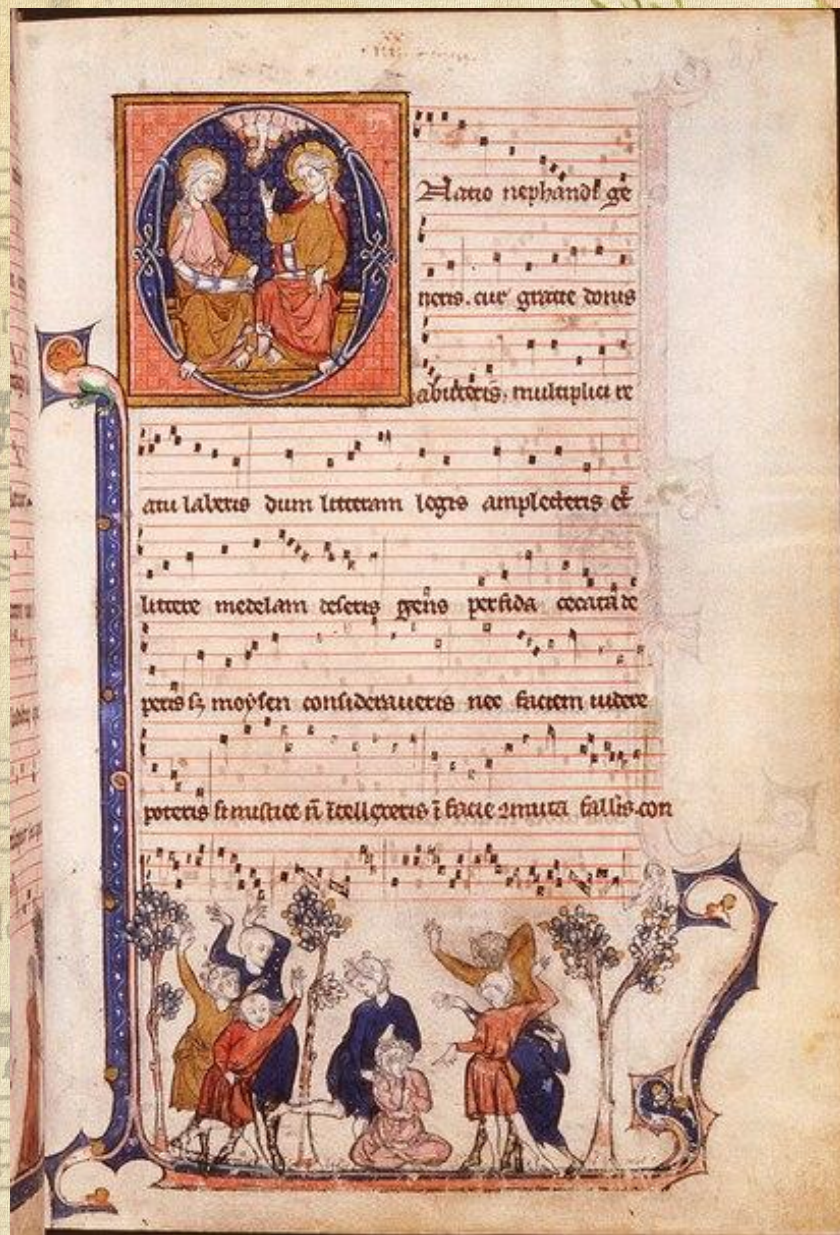 Natio nephandi ge
neris. cur gratie donis
abuteris, multiplici re
atu laberis dum litteram legis amplecteris et
littere medelam deseris gens perfida cecata de
peris si moysen consideraueris nec faciem uidere
poteris si mistice ñ ītelligeris ī facie fallis.con